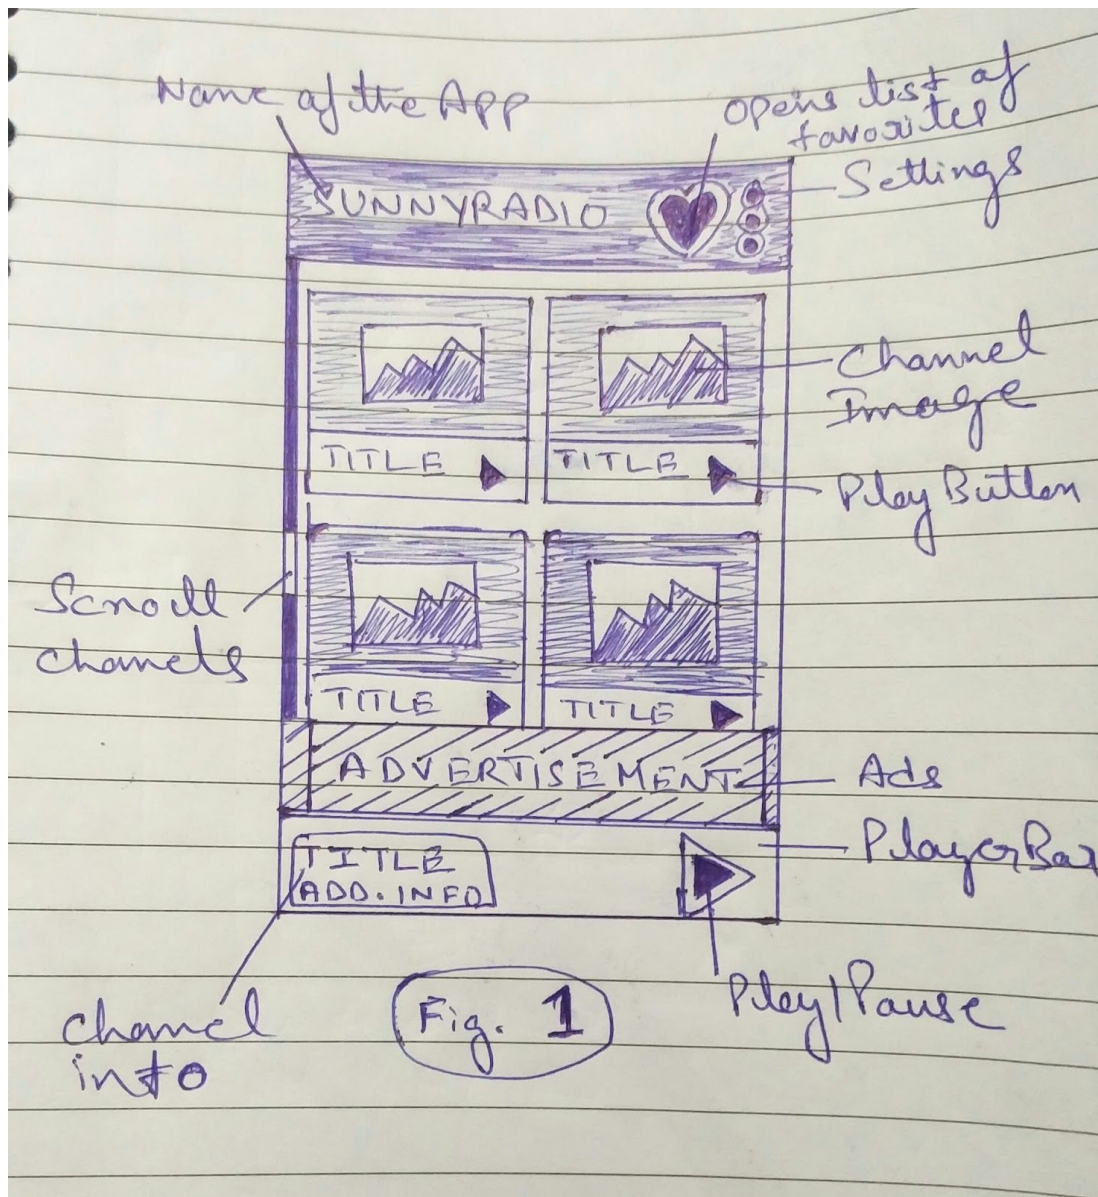 Name of the App
Opens list of
favorites
Settings
SUNNYRADIO
Channel
Image
TITLE
TITLE
Play Button
Scroll
chanels
TITLE
TITLE
ADVERTISEMENT
Ads
Player Bar
TITLE
ADD. INFO
Play/Pause
Chanel
info
Fig. 1